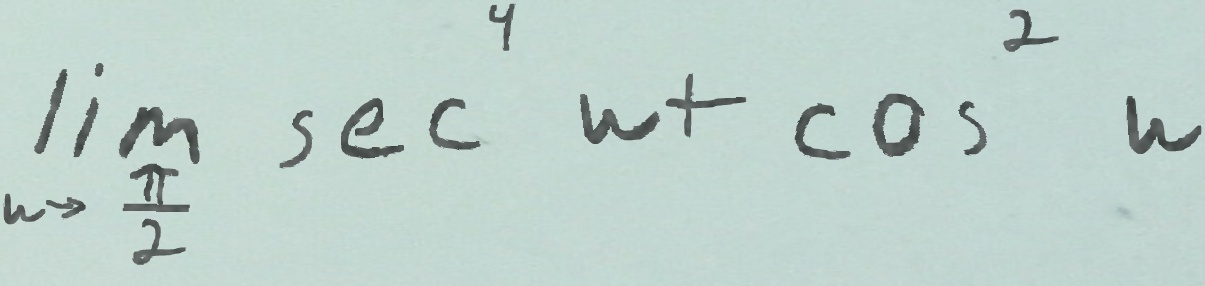 lim_{w→\frac{π}{2}} sec^4 w + cos^2 w